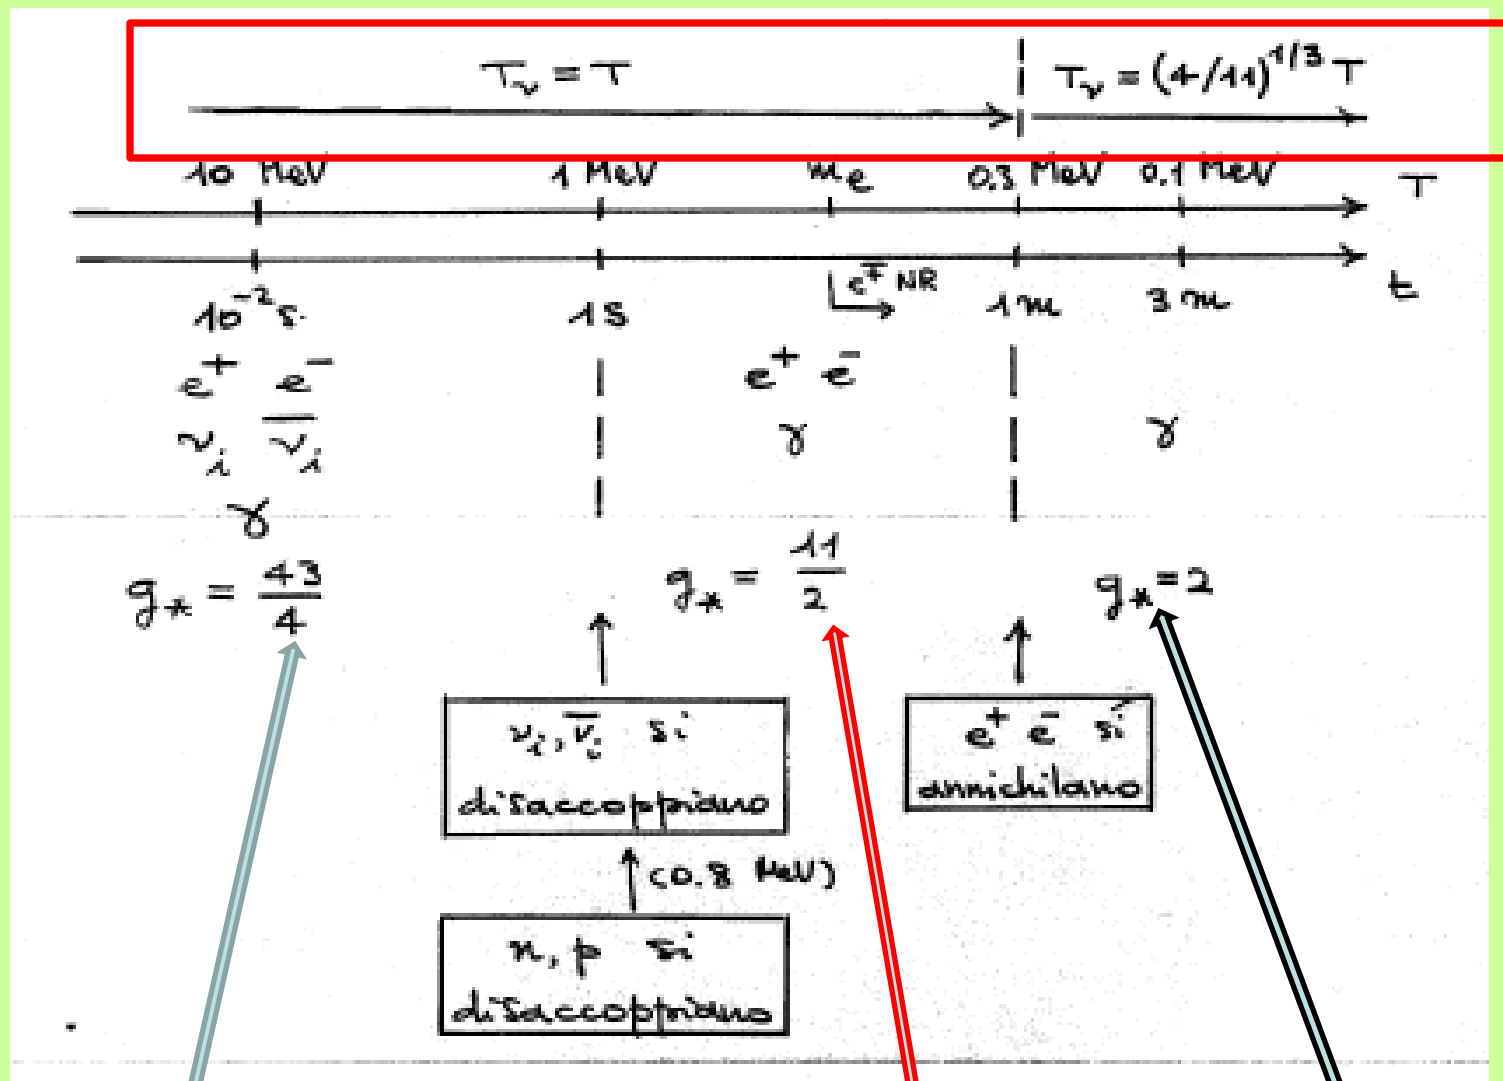 Tν = T
Tν = (4/11)^1/3 T
10 MeV 1 MeV me 0.3 MeV 0.1 MeV T
e∓ NR
10⁻² s. 1s 1m 3m t
e⁺ e⁻ e⁺ e⁻
νi ν̄i γ γ
γ
g* = 43/4 g* = 11/2 g* = 2
νi, ν̄i si
disaccoppiano
e⁺ e⁻ si
annichilano
(0.8 MeV)
n, p si
disaccoppiano